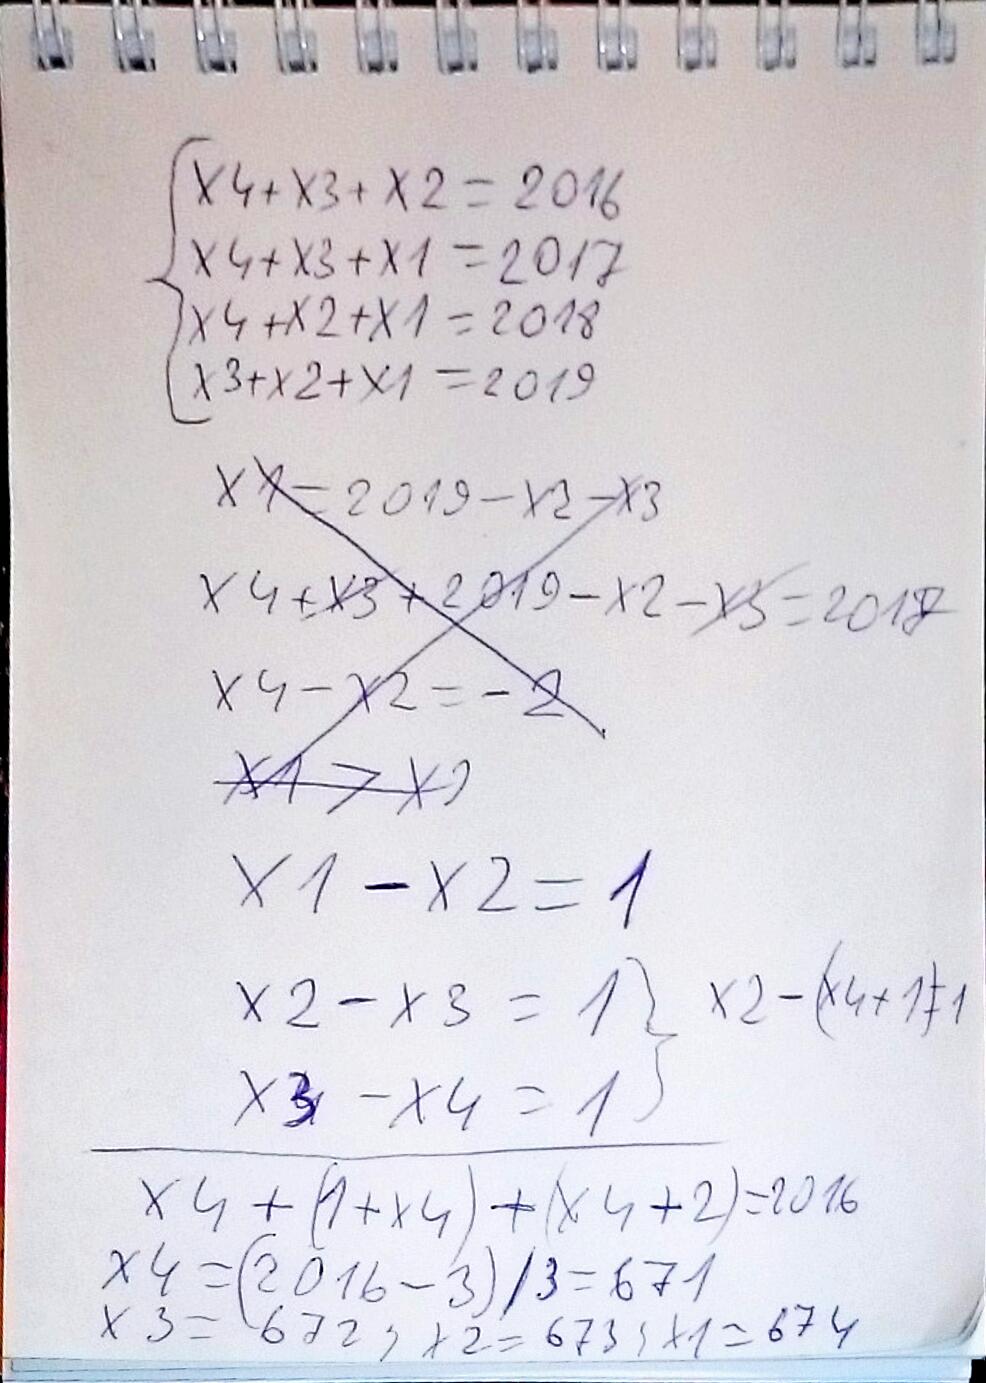 x4+x3+x2=2016
x4+x3+x1=2017
x4+x2+x1=2018
x3+x2+x1=2019
x1=2019-x2-x3
x4+x3+2019-x2-x3=2017
x4-x2=-2
x1>x2
x1-x2=1
x2-x3=1
x2-(x4+1)=1
x3-x4=1
x4+(1+x4)+(x4+2)=2016
x4=(2016-3)/3=671
x3=672, x2=673, x1=674